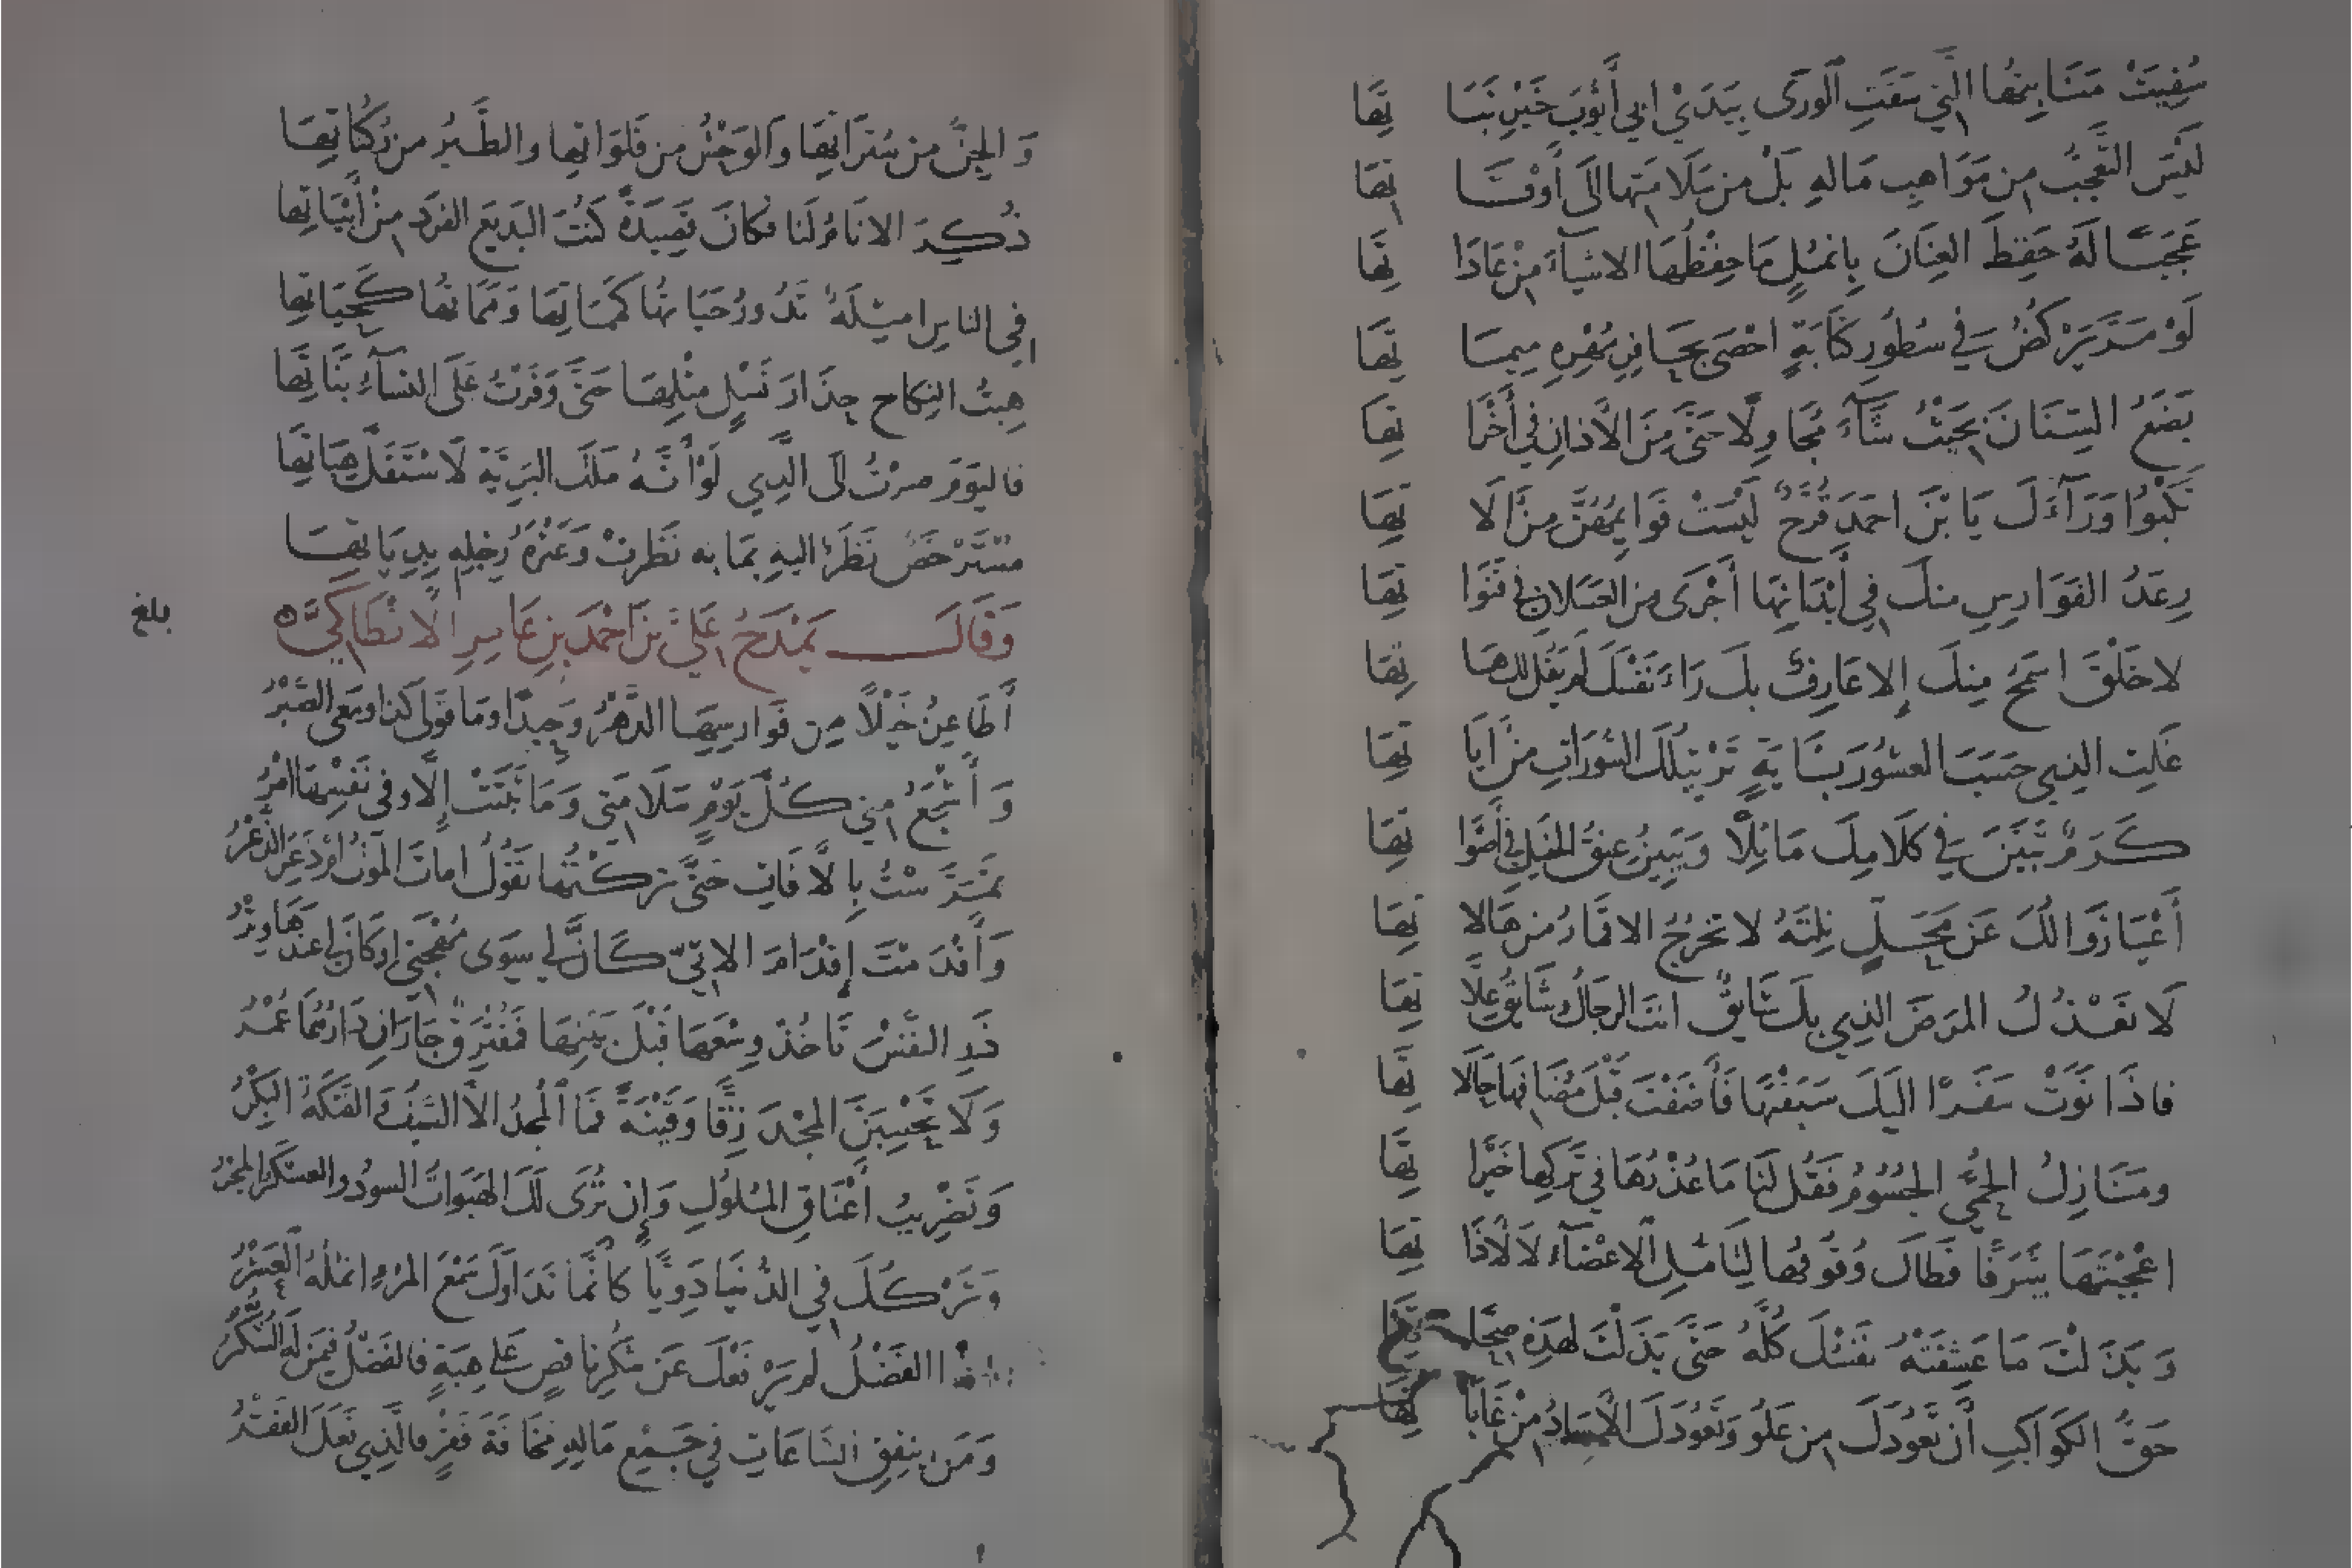 سُقِيَتْ مَنَابِتُهَا الَّتِي سَقَتِ الوَرَى بِيَدَيْ ابي أَيُّوبَ خَيْرِ نَبَا تِهَا
لَيْسَ التَّعَجُّبُ مِن مَوَاهِبِ مَالهِ بَلْ من سَلَامَتِها الَى أَوْقَا تِهَا
عَجَبًا لَهُ حَفِظَ العِنَانَ بِانمُلٍ مَا حِفْظُهَا الاشيآءَ مِنْ عَادَا تِهَا
لَوْ مَرَّ يَرْكُضُ في سُطُورِ كِتَابَةٍ احْصَى بِحَافِرِ مُهْرِهِ مِيمَا تِهَا
يَضَعُ السِّنَانَ بِحَيْثُ شَآءَ مُجَاوِلًا حَتَّى مِنَ الآذانِ في أَخْرَا تِهَا
تَكْبُوا وَرَآءَكَ يَا بْنَ احمَدَ قُرَّحٌ لَيْسَتْ قَوَايِمُهُنَّ مِنْ الَا تِهَا
رِعَدُ الفَوَارِسِ منكَ في أَبْدَانِهَا أَجْرَى مِنَ العَسَلانِ في قَنَوَا تِهَا
لا خَلْقَ اسْمَحُ مِنكَ إِلا عَارِفٌ بكَ رَاءَ نَفْسَكَ لَم يَقُل لكَ هَا تِهَا
غَلِتَ الذي حَسَبَ العشُورَ بِآيَةٍ تَرْتِيلُكَ السُّورَاتِ مِنْ ايَا تِهَا
كَرَمٌ تَبَيَّنَ في كَلَامِكَ مَاثِلًا وَيَبِينُ عِتقُ الخَيلِ في أَصْوَا تِهَا
أَعْيَا زَوَالُكَ عَن مَحَلٍّ نِلتَهُ لا تَخرُجُ الاقمَارُ من هَالا تِهَا
لَا نَعْذُلُ المرَضَ الذِي بِكَ شَايِقٌ انتَ الرجَالَ وشَايِقٌ عِلَّا تِهَا
فاذَا نَوَتْ سَفَرًا اليكَ سَبَقْتَهَا فَأَضَفْتَ قَبْلَ مُضَافِهَا حَالَا تِهَا
ومَنَازِلُ الحُمَّى الجُسُومُ فَقُل لَنَا مَا عُذْرُهَا في تَرْكِها خَيْرَا تِهَا
اعْجَبْتَهَا شَرَفًا فَطَالَ وُقُوفُها لِتَامُّلِ الاعْضَآءِ لَا لأَذَا تِهَا
وَ بَذَلْتَ مَا عَشِقَتْهُ نَفْسُكَ كُلَّهُ حَتَّى بَذَلْتَ لهَذِهِ صِحَّا تِهَا
حَقُّ الكَوَاكِبِ أَن تَعُودَكَ مِن عَلُو وَتَعُودَكَ الآسَادُ مِنْ غَابَا تِهَا
وَ الجِنُّ من سُتَرَاتِهَا وَالوَحْشُ من فَلَوَاتِها والطَّيْرُ من وُكُنَاتِهَا
ذُكِرَ الانَامُ لَنَا فكَانَ قَصِيدَةً كُنْتَ البَدِيعَ الفَرْدَ مِنْ أَبْيَاتِها
في الناسِ امثِلَةٌ تَدُورُ حَيَاتُهَا كَمَمَاتِهَا وَمَمَاتُها كَحَيَاتِها
هِبتُ النِكَاحَ حِذَارَ نَسْلٍ مِثْلِهَا حَتَّى وَفَرْتُ عَلَى النسآءِ بَنَاتِهَا
فاليَوْمَ صِرْتُ الَى الَّذِي لَوْ أَنَّهُ مَلَكَ البَرِيَّةَ لَاسْتَقَلَّ هِبَاتِهَا
مُسْتَرْخَصٌ نَظَرٌ اليهِ بمَا به نَظَرتْ وَعَثْرَةُ رِجْلِهِ بِدِيَاتِهَا
وَقَالَ يَمْدَحُ عَلِيَّ بنَ احْمَدَ بنِ عَامِرِ الانْطَاكِيَّ
بلغ
أُطَاعِنُ خَيْلًا مِن فَوَارِسِهَا الدَّهْرُ وَحِيدًا وما قَولي كذا ومَعي الصَّبْرُ
وَ أَشْجَعُ مِني كُلَّ يَوْمٍ سَلَامَتي وَمَا ثَبَتَتْ إِلَّا وفي نَفْسِهَا امْرُ
تَمَرَّسْتُ بِالآفَاتِ حَتَّى تَرَكْتُها تَقُولُ امَاتَ الموْتُ امْ ذُعِرَ الذُّعْرُ
وَأَقْدَمْتُ إِقْدَامَ الاتِيِّ كَأَنَّ لي سِوَى مُهْجَتي او كانَ لي عندَهَا وِتْرُ
ذَرِ النَّفْسَ تَأخُذْ وِسْعَهَا قَبْلَ بَيْنِهَا فَمُفْتَرِقٌ جَارَانِ دَارُهُمَا عُمْرُ
وَلَا تَحْسِبَنَّ المجْدَ زِقًّا وَقَيْنَةً فَمَا المجدُ الا السَّيْفُ وَالفَتْكَةُ البِكْرُ
وَتَضْرِيبُ أَعْنَاقِ المُلُوكِ وَإِن تُرَى لَكَ الهَبَوَاتُ السودُ والعسكَرُ المجْرُ
وَتَرْكُكَ في الدُّنيَا دَوِيًّا كأنَّمَا تَدَاوَلَ سَمْعَ المَرْءِ انمُلُهُ العَشْرُ
إذا الفَضْلُ لم يَرْفَعْكَ عَن شُكْرِ ناقصٍ عَلَى هِبَةٍ فالفَضْلُ فيمَن لَهُ الشُّكْرُ
وَمَن يُنفِقِ السَّاعَاتِ في جَمْعِ مَالِهِ مَخَافَةَ فَقْرٍ فالَّذِي فَعَلَ الفَقْرُ